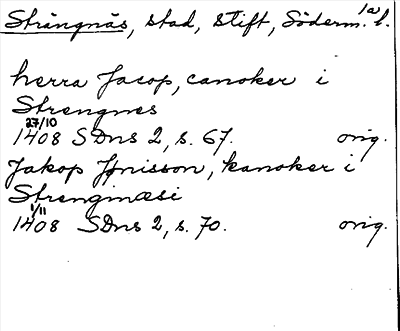 Strängnäs, stad, stift, Söderm. l. 1a
herra Jacop, canoker i
Strengnes
27/10
1408 SDns 2, s. 67. orig.
Jakop Jönisson, kanoker i
Strenginæsi
1/11
1408 SDns 2, s. 70. orig.